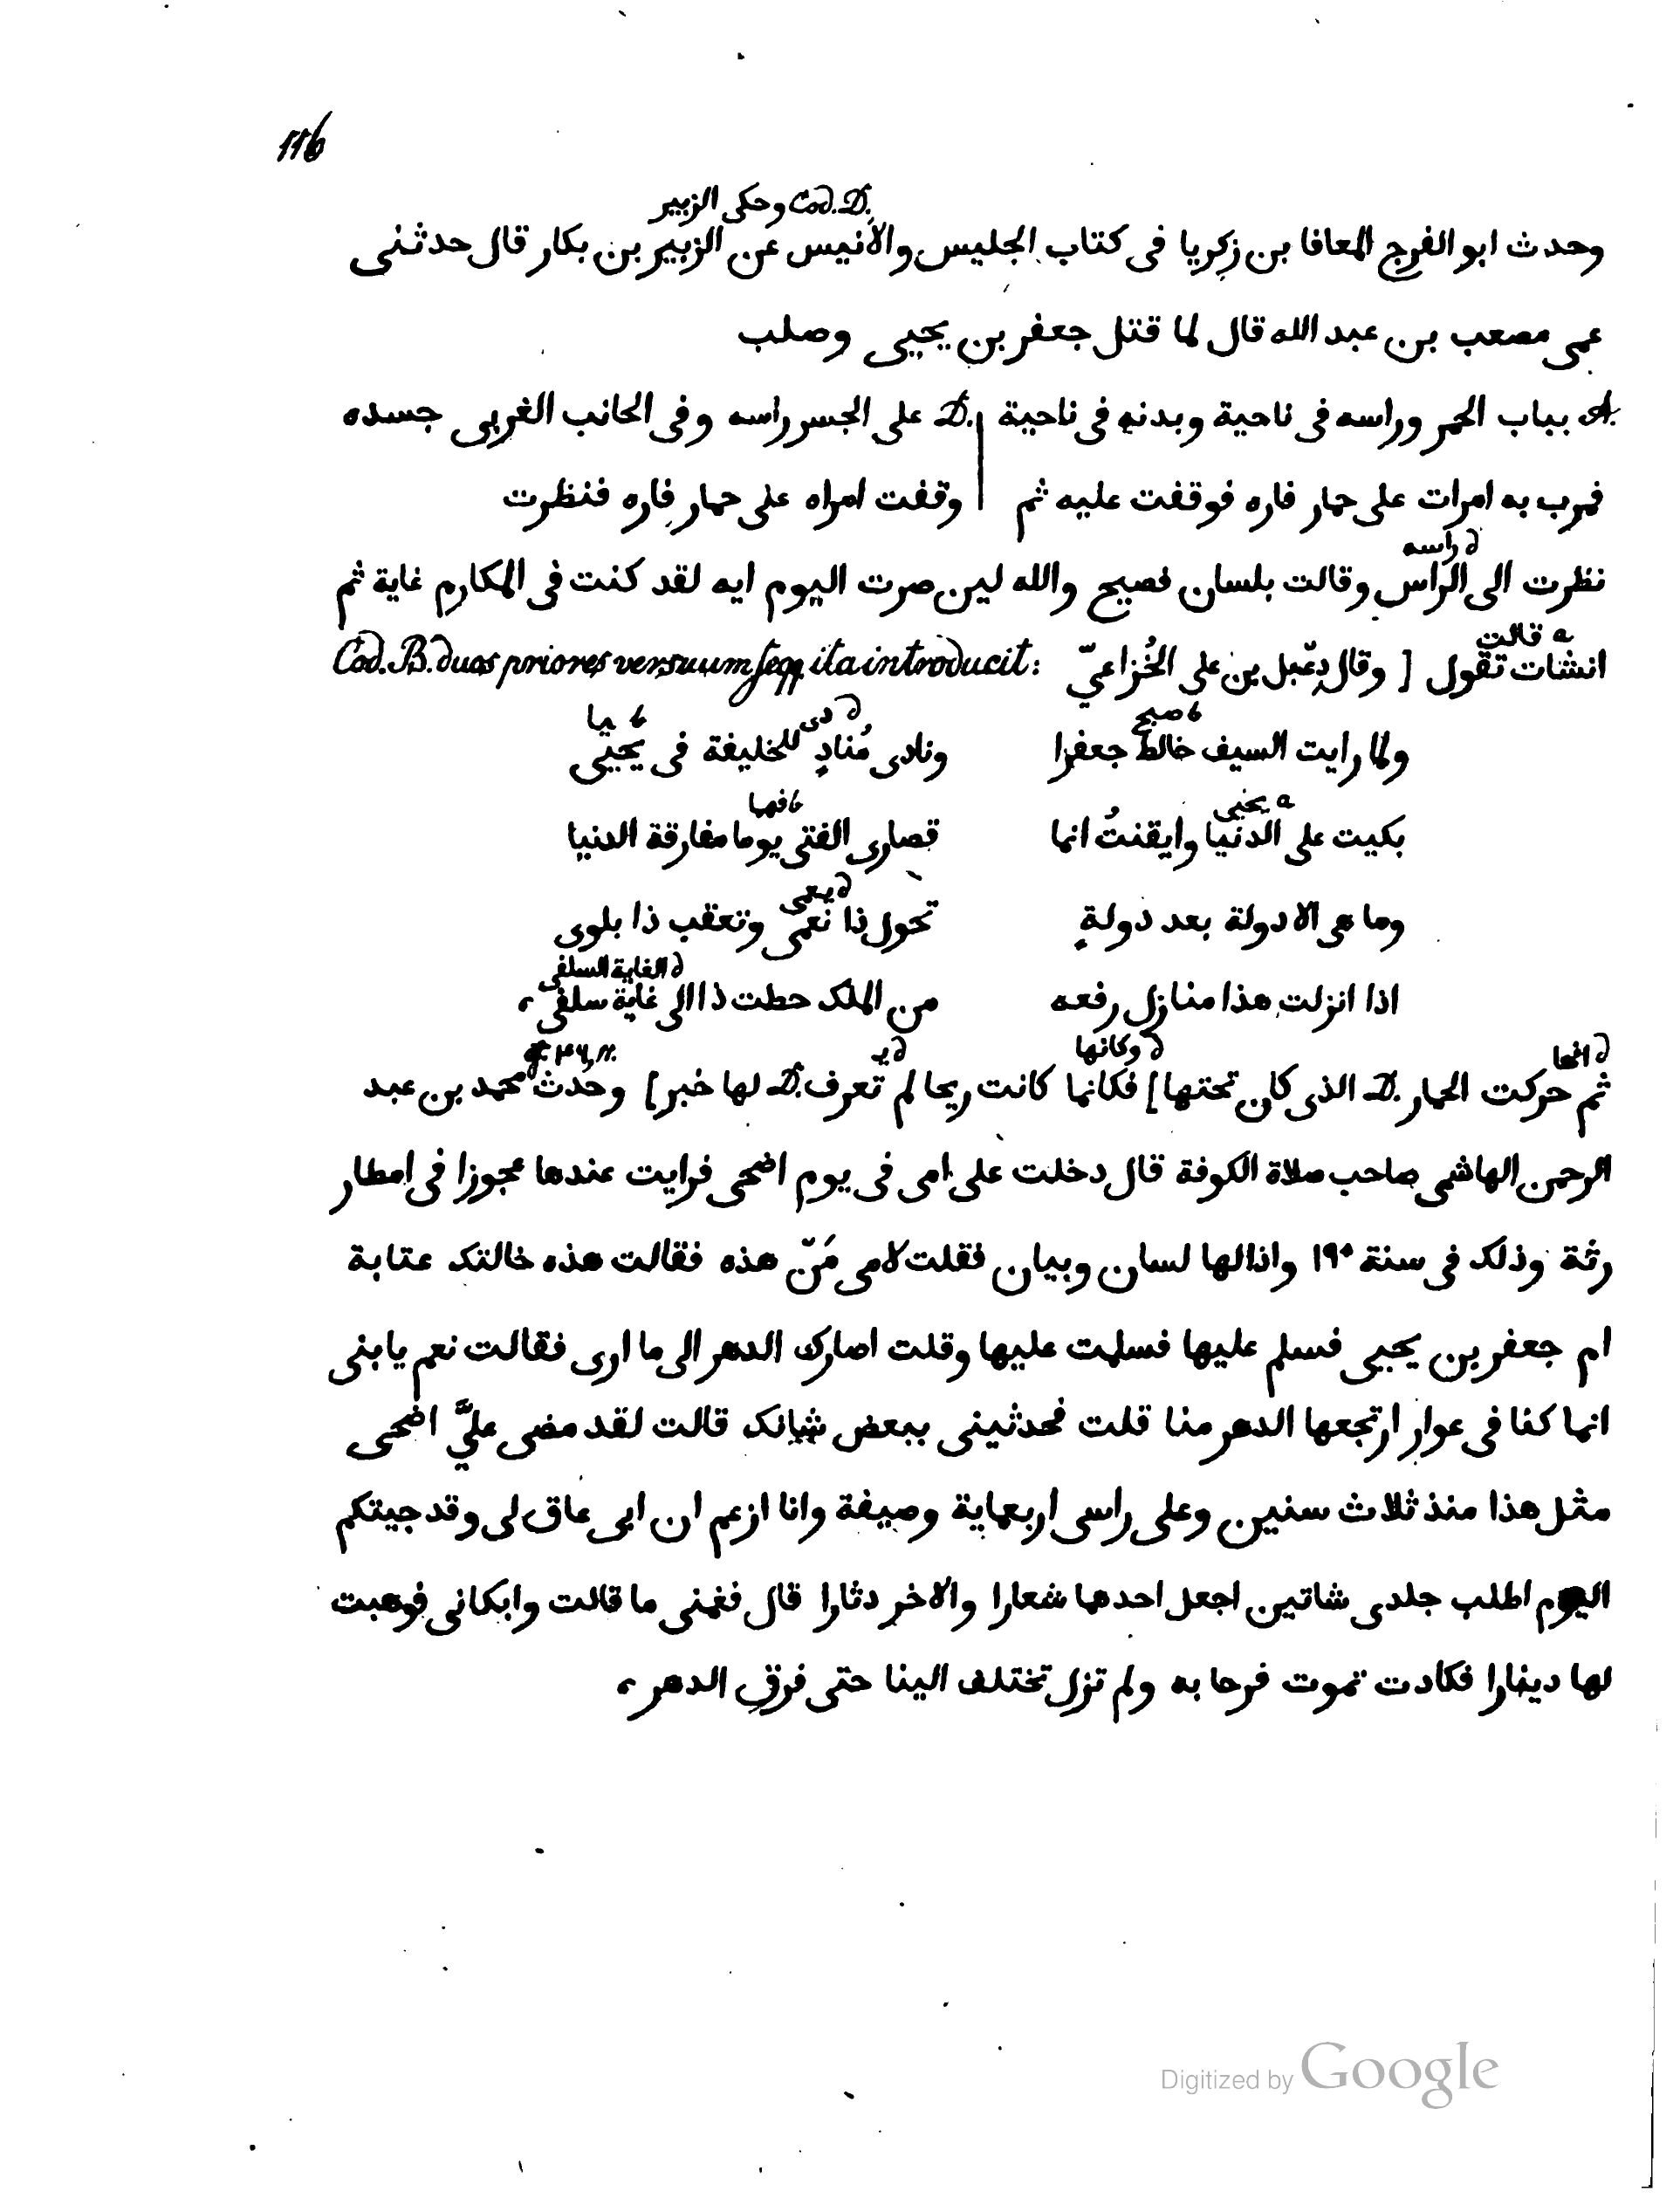 116
Cod. D. وحكى الزبير
وحدث ابو الفرج المعافا بن زكريا فى كتاب الجليس والأنيس عن الزبير بن بكار قال حدثنى
عمى مصعب بن عبد الله قال لما قتل جعفر بن يحيى وصلب
A. بباب الجسر وراسه فى ناحية وبدنه فى ناحية | D. على الجسر راسه وفى الجانب الغربى جسده
فمرت به امرات على حمار فاره فوقفت عليه ثم | وقفت امراه على حمار فاره فنظرت
d راسه
نظرت الى الراس وقالت بلسان فصيح والله لين صرت اليوم ايه لقد كنت فى المكارم غاية ثم
a قالت
انشات تقول [ وقال دِعْبل بن على الخُزاعىّ Cod. B. duos priores versuum seqq ita introducit:
b صبح d دى b يا
ولما رايت السيف خالط جعفرا ونادى مُنادٍ للخليفة فى يحيى
a يحيى b فيها
بكيت على الدنيا وايقنتُ انما قصارى الفتى يوما مفارقة الدنيا
d يعمى
وما هى الا دولة بعد دولةٍ تحول ذا نعمى وتعقب ذا بلوى
d الغاية السلفى
اذا انزلت هذا منازل رفعه من الملك حطت ذا الى غاية سلفى،
d انها d وكانها d يـ
ثم حركت الحمار D. الذى كان تحتها] فكانما كانت ريحا لم تعرف D. لها خبر] وحدث محمد بن عبد
الرحمن الهاشمى صاحب صلاة الكوفة قال دخلت على امى فى يوم اضحى فرايت عندها عجوزا فى امطار
رثة وذلك فى سنة ١٩٠ واذا لها لسان وبيان فقلت لامى مَنْ هذه فقالت هذه خالتك عتابة
ام جعفر بن يحيى فسلم عليها فسلمت عليها وقلت اصارك الدهر الى ما ارى فقالت نعم يا بنى
انما كنا فى عوار ارتجعها الدهر منا قلت فحدثينى ببعض شانك قالت لقد مضى علىَّ اضحى
مثل هذا منذ ثلاث سنين وعلى راسى اربعماية وصيفة وانا ازعم ان ابنى عاق لى وقد جيتكم
اليوم اطلب جلدى شاتين اجعل احدها شعارا والاخر دثارا قال فغمنى ما قالت وابكانى فوهبت
لها دينارا فكادت تموت فرحا به ولم تزل تختلف الينا حتى فرق الدهر،
Digitized by Google